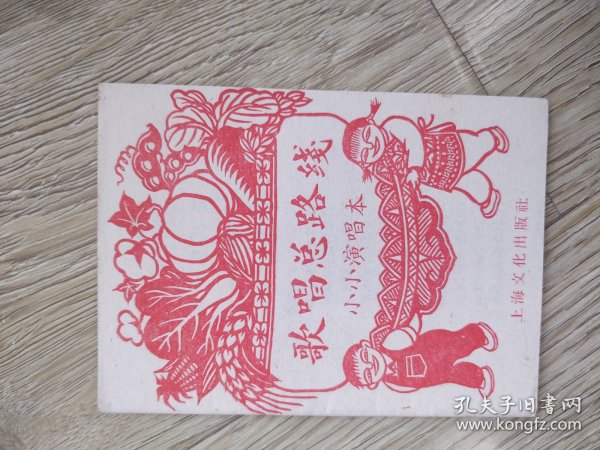 歌唱总路线
小小演唱本
上海文化出版社
孔夫子旧书网
www.kongfz.com